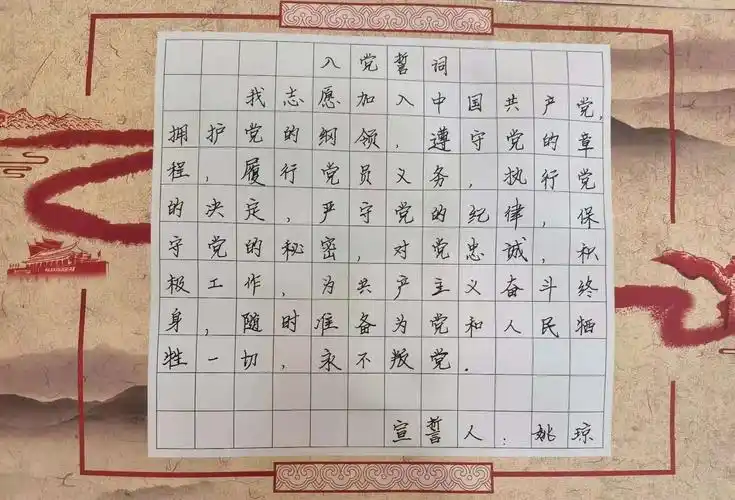 入党誓词
我志愿加入中国共产党,
拥护党的纲领,遵守党的章
程,履行党员义务,执行党
的决定,严守党的纪律,保
守党的秘密,对党忠诚,积
极工作,为共产主义奋斗终
身,随时准备为党和人民牺
牲一切,永不叛党.
宣誓人:姚琼